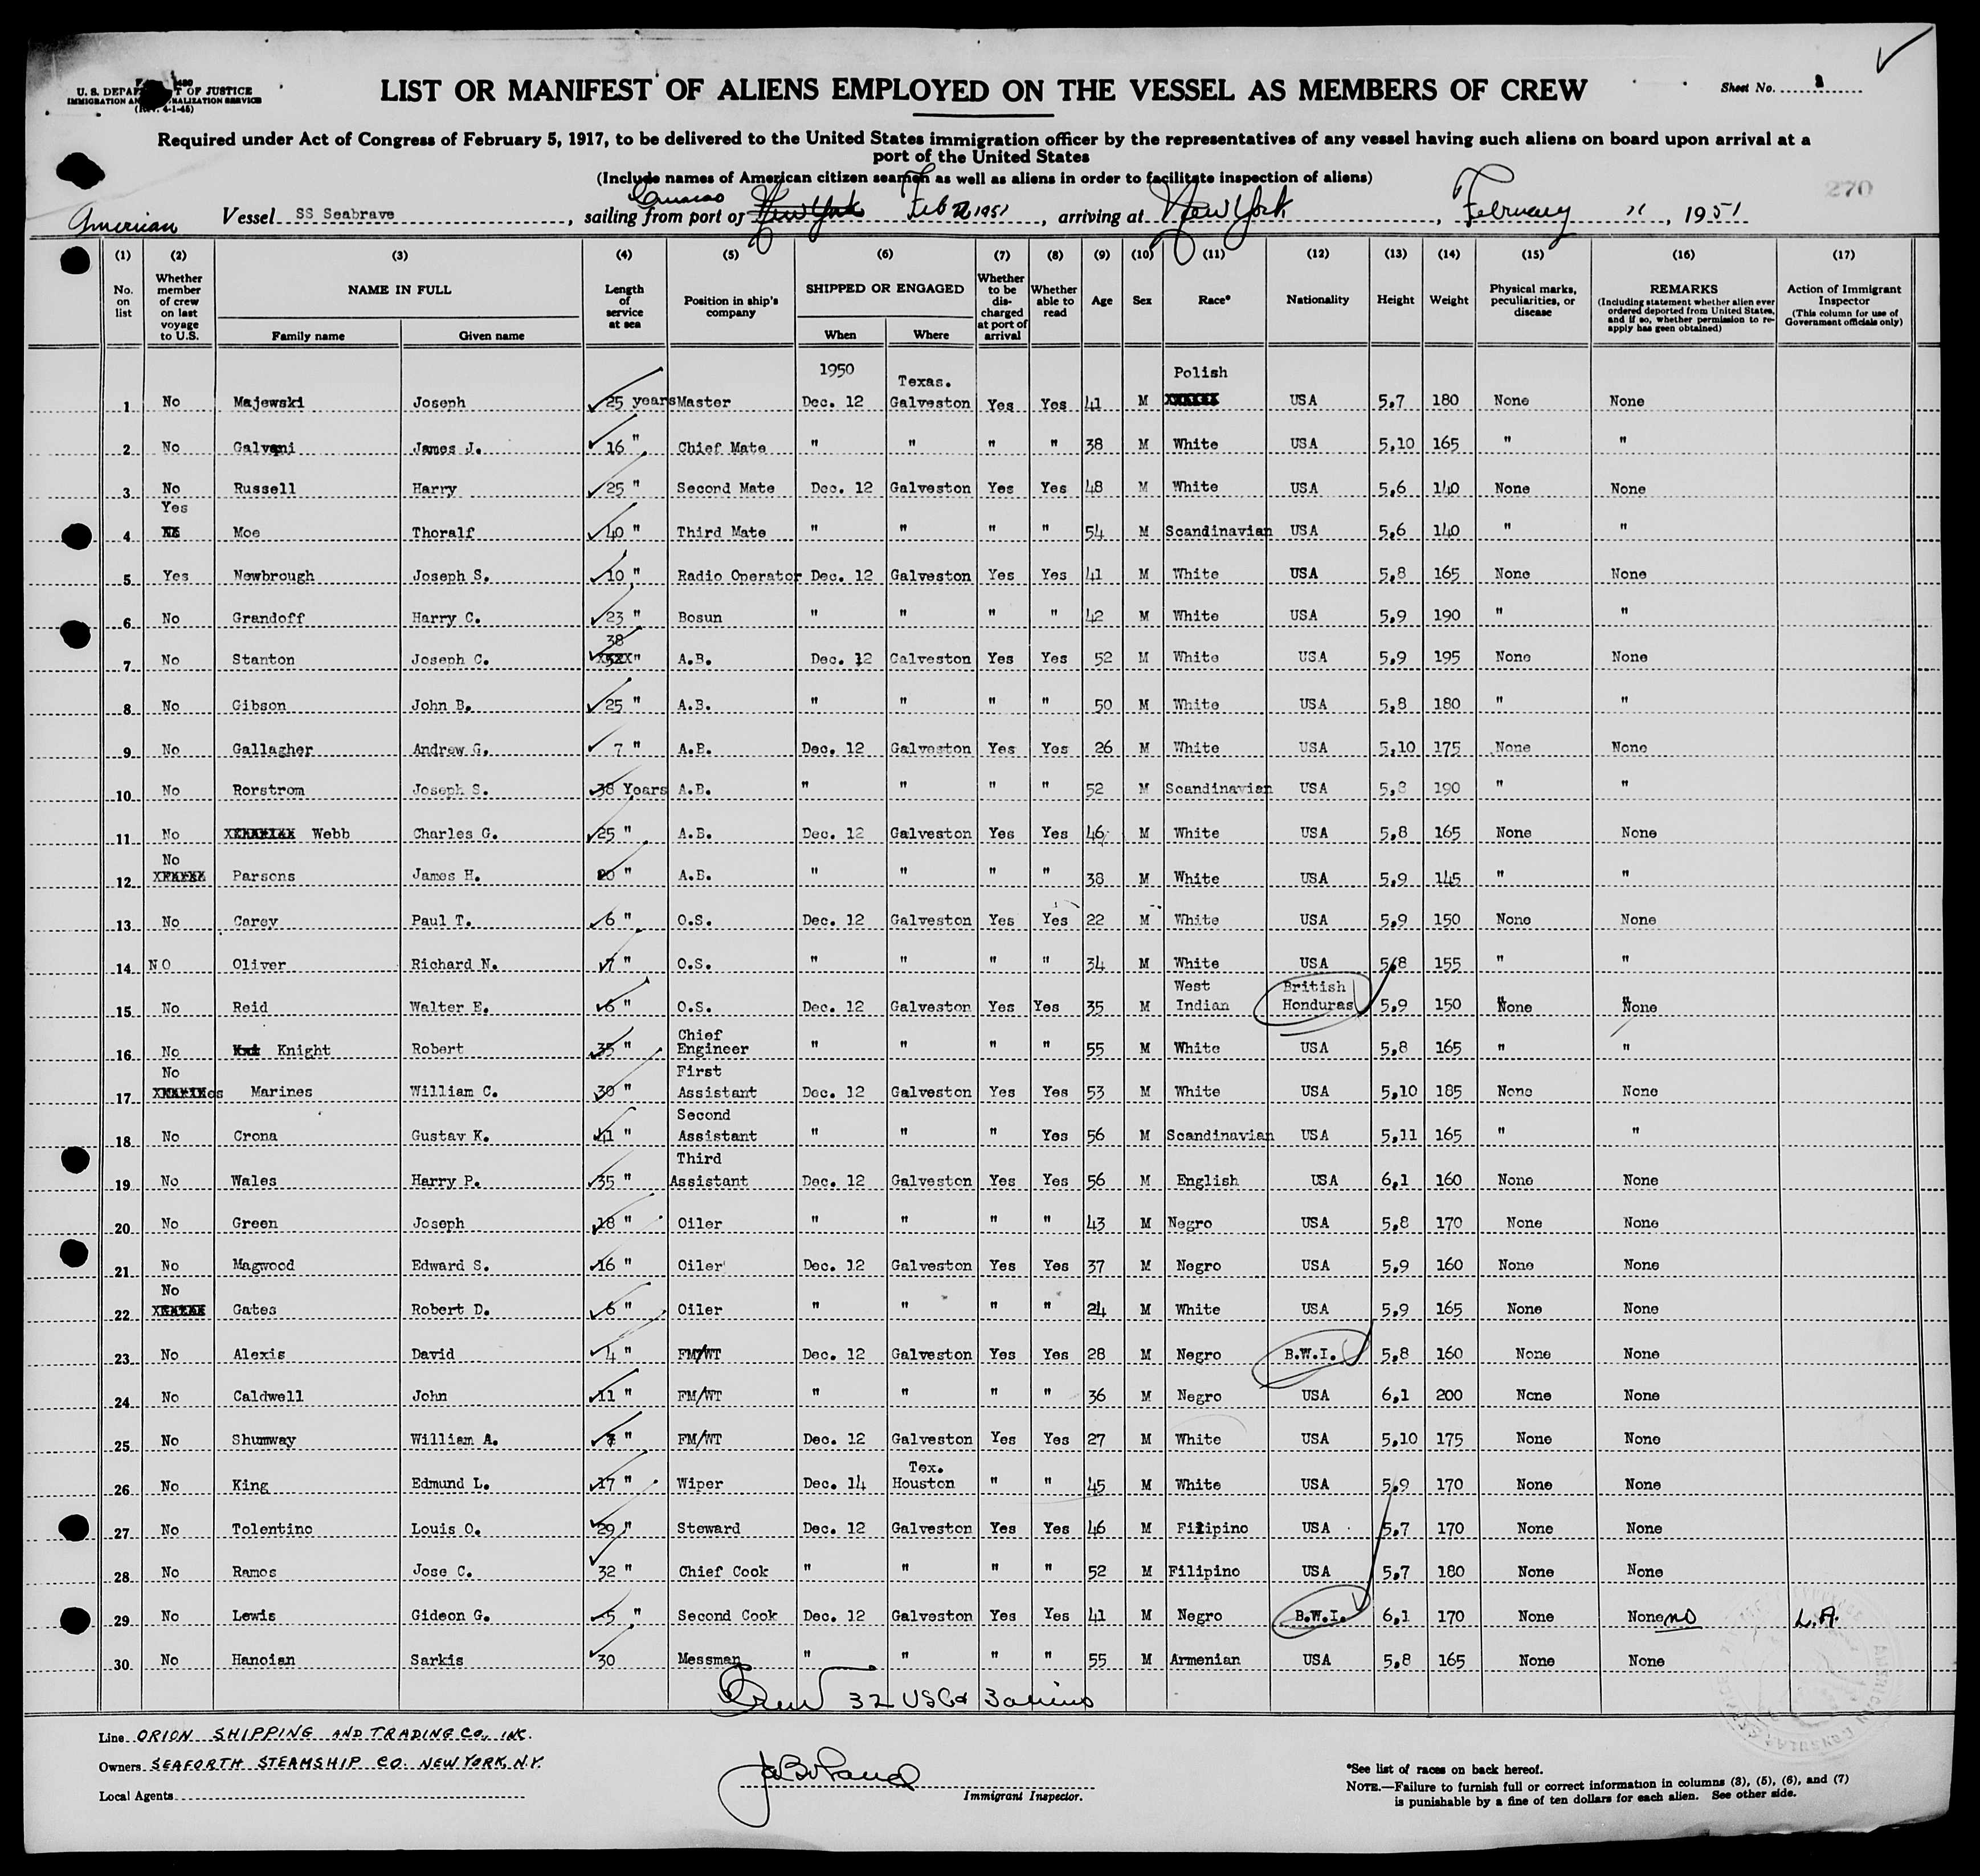 U. S. DEPARTMENT OF JUSTICE
IMMIGRATION AND NATURALIZATION SERVICE
(Rev. 4-1-45)
LIST OR MANIFEST OF ALIENS EMPLOYED ON THE VESSEL AS MEMBERS OF CREW
Sheet No.
Required under Act of Congress of February 5, 1917, to be delivered to the United States immigration officer by the representatives of any vessel having such aliens on board upon arrival at a
port of the United States
(Include names of American citizen seamen as well as aliens in order to facilitate inspection of aliens)
270
American Vessel SS Seabrave, sailing from port of Curacao New York Feb 1951, arriving at New York, February 11, 1951
(1) (2) (3) (4) (5) (6) (7) (8) (9) (10) (11) (12) (13) (14) (15) (16) (17)
No. on list Whether member of crew on last voyage to U.S. NAME IN FULL Family name Given name Length of service at sea Position in ship's company SHIPPED OR ENGAGED When Where Whether to be discharged at port of arrival Whether able to read Age Sex Race* Nationality Height Weight Physical marks, peculiarities, or disease REMARKS (Including statement whether alien ever ordered deported from United States, and if so, whether permission to re-apply has been obtained) Action of Immigrant Inspector (This column for use of Government officials only)
1950 Texas. Polish
1 No Majewski Joseph 25 years Master Dec. 12 Galveston Yes Yes 41 M USA 5,7 180 None None
2 No Galvani James J. 16 " Chief Mate " " " " 38 M White USA 5,10 165 " "
3 No Russell Harry 25 " Second Mate Dec. 12 Galveston Yes Yes 48 M White USA 5,6 140 None None
Yes
4 Moe Thoralf 40 " Third Mate " " " " 54 M Scandinavian USA 5,6 140 " "
5 Yes Newbrough Joseph S. 10 " Radio Operator Dec. 12 Galveston Yes Yes 41 M White USA 5,8 165 None None
6 No Grandoff Harry C. 23 " Bosun " " " " 42 M White USA 5,9 190 " "
38
7 No Stanton Joseph C. " A.B. Dec. 12 Galveston Yes Yes 52 M White USA 5,9 195 None None
8 No Gibson John B. 25 " A.B. " " " " 50 M White USA 5,8 180 " "
9 No Gallagher Andrew G. 7 " A.B. Dec. 12 Galveston Yes Yes 26 M White USA 5,10 175 None None
10 No Rorstrom Joseph S. 38 Years A.B. " " " " 52 M Scandinavian USA 5,8 190 " "
11 No Webb Charles G. 25 " A.B. Dec. 12 Galveston Yes Yes 46 M White USA 5,8 165 None None
No
12 Parsons James H. 20 " A.B. " " " " 38 M White USA 5,9 145 " "
13 No Carey Paul T. 6 " O.S. Dec. 12 Galveston Yes Yes 22 M White USA 5,9 150 None None
14 NO Oliver Richard N. 7 " O.S. " " " " 34 M White USA 5,8 155 " "
West British
15 No Reid Walter E. 6 " O.S. Dec. 12 Galveston Yes Yes 35 M Indian Honduras 5,9 150 None None
Chief
16 No Knight Robert 35 " Engineer " " " " 55 M White USA 5,8 165 " "
No First
17 Marines William C. 30 " Assistant Dec. 12 Galveston Yes Yes 53 M White USA 5,10 185 None None
Second
18 No Crona Gustav K. 41 " Assistant " " " Yes 56 M Scandinavian USA 5,11 165 " "
Third
19 No Wales Harry P. 35 " Assistant Dec. 12 Galveston Yes Yes 56 M English USA 6,1 160 None None
20 No Green Joseph 18 " Oiler " " " " 43 M Negro USA 5,8 170 None None
21 No Magwood Edward S. 16 " Oiler Dec. 12 Galveston Yes Yes 37 M Negro USA 5,9 160 None None
No
22 Gates Robert D. 6 " Oiler " " " " 24 M White USA 5,9 165 None None
23 No Alexis David 4 " FM/WT Dec. 12 Galveston Yes Yes 28 M Negro B.W.I. 5,8 160 None None
24 No Caldwell John 11 " FM/WT " " " " 36 M Negro USA 6,1 200 None None
25 No Shumway William A. 7 " FM/WT Dec. 12 Galveston Yes Yes 27 M White USA 5,10 175 None None
Tex.
26 No King Edmund L. 17 " Wiper Dec. 14 Houston " " 45 M White USA 5,9 170 None None
27 No Tolentino Louis O. 29 " Steward Dec. 12 Galveston Yes Yes 46 M Filipino USA 5,7 170 None None
28 No Ramos Jose C. 32 " Chief Cook " " " " 52 M Filipino USA 5,7 180 None None
29 No Lewis Gideon G. 5 " Second Cook Dec. 12 Galveston Yes Yes 41 M Negro B.W.I. 6,1 170 None None no L.A.
30 No Hanoian Sarkis 30 Messman " " " " 55 M Armenian USA 5,8 165 None None
Crew 32 USC & 3 aliens
Line ORION SHIPPING AND TRADING CO., INC.
Owners SEAFORTH STEAMSHIP CO. NEW YORK, N.Y.
Local Agents
Immigrant Inspector.
*See list of races on back hereof.
NOTE.—Failure to furnish full or correct information in columns (3), (5), (6), and (7)
is punishable by a fine of ten dollars for each alien. See other side.